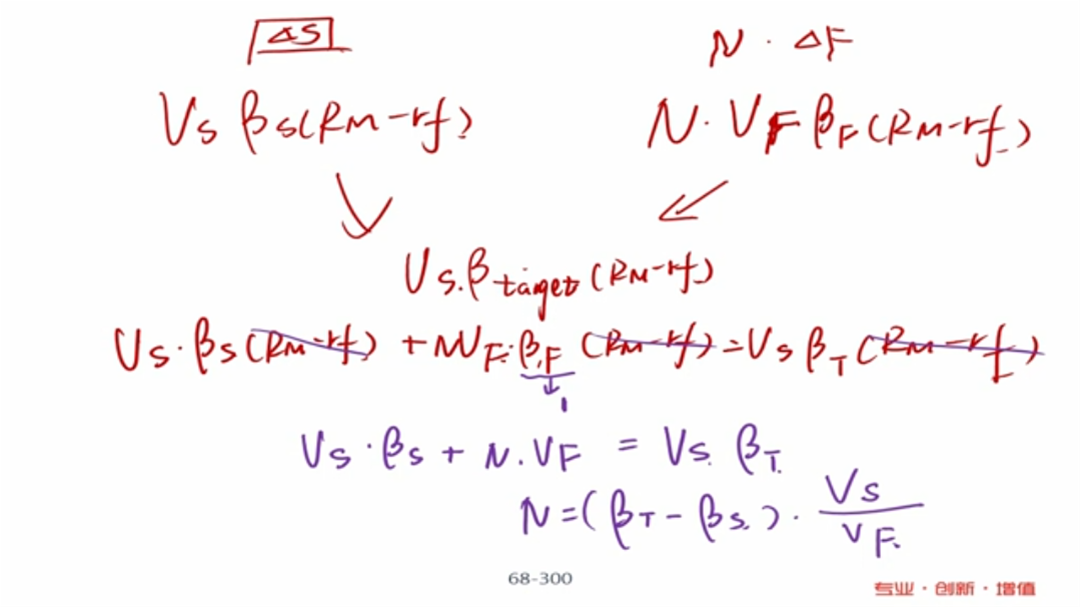 ΔS
N · ΔF
Vs βs(RM-rf)
N · VF βF(RM-rf)
Vs.βtarget(RM-rf)
Vs·βs(RM-rf) + NVF·βF(RM-rf) = Vs βT(RM-rf)
↓
1
Vs·βs + N.VF = Vs. βT.
N = (βT - βs.) · Vs / VF.
68-300
专业·创新·增值